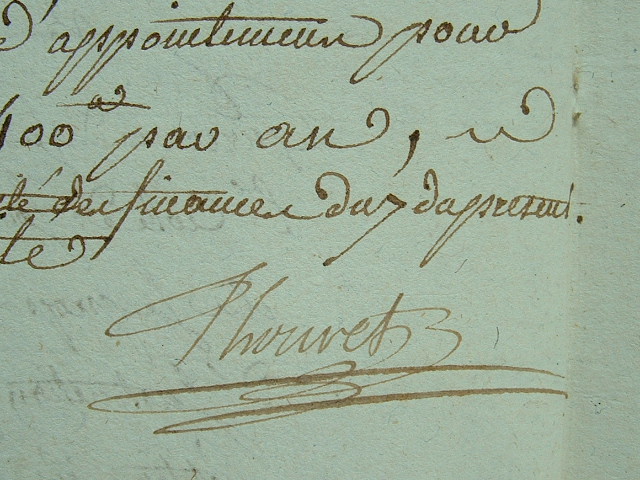 d'appointemens pour
400 par an,
té des finances du 7 du present.
te
Thouret